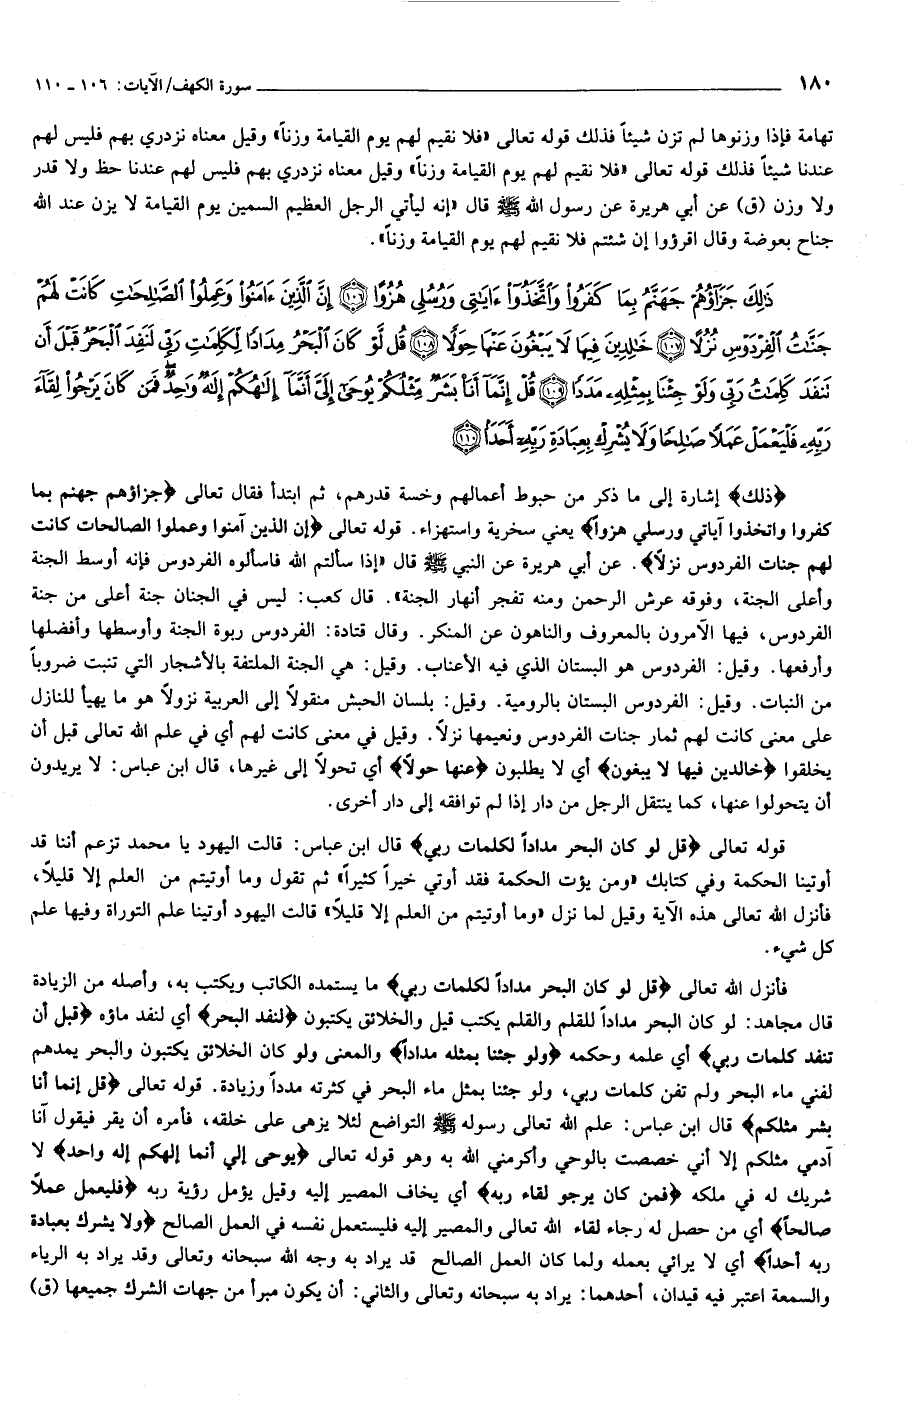 ١٨٠ سورة الكهف/ الآيات: ١٠٦ ـ ١١٠
تهامة فإذا وزنوها لم تزن شيئاً فذلك قوله تعالى «فلا نقيم لهم يوم القيامة وزناً» وقيل معناه نزدري بهم فليس لهم
عندنا شيئاً فذلك قوله تعالى «فلا نقيم لهم يوم القيامة وزناً» وقيل معناه نزدري بهم فليس لهم عندنا حظ ولا قدر
ولا وزن (ق) عن أبي هريرة عن رسول الله ﷺ قال «إنه ليأتي الرجل العظيم السمين يوم القيامة لا يزن عند الله
جناح بعوضة وقال اقرؤوا إن شئتم فلا نقيم لهم يوم القيامة وزناً».
ذَٰلِكَ جَزَآؤُهُمْ جَهَنَّمُ بِمَا كَفَرُوا۟ وَٱتَّخَذُوٓا۟ ءَايَٰتِى وَرُسُلِى هُزُوًا ﴿١٠٦﴾ إِنَّ ٱلَّذِينَ ءَامَنُوا۟ وَعَمِلُوا۟ ٱلصَّٰلِحَٰتِ كَانَتْ لَهُمْ
جَنَّٰتُ ٱلْفِرْدَوْسِ نُزُلًا ﴿١٠٧﴾ خَٰلِدِينَ فِيهَا لَا يَبْغُونَ عَنْهَا حِوَلًا ﴿١٠٨﴾ قُل لَّوْ كَانَ ٱلْبَحْرُ مِدَادًا لِّكَلِمَٰتِ رَبِّى لَنَفِدَ ٱلْبَحْرُ قَبْلَ أَن
تَنفَدَ كَلِمَٰتُ رَبِّى وَلَوْ جِئْنَا بِمِثْلِهِۦ مَدَدًا ﴿١٠٩﴾ قُلْ إِنَّمَآ أَنَا۠ بَشَرٌ مِّثْلُكُمْ يُوحَىٰٓ إِلَىَّ أَنَّمَآ إِلَٰهُكُمْ إِلَٰهٌ وَٰحِدٌ ۖ فَمَن كَانَ يَرْجُوا۟ لِقَآءَ
رَبِّهِۦ فَلْيَعْمَلْ عَمَلًا صَٰلِحًا وَلَا يُشْرِكْ بِعِبَادَةِ رَبِّهِۦٓ أَحَدًۢا ﴿١١٠﴾
﴿ذلك﴾ إشارة إلى ما ذكر من حبوط أعمالهم وخسة قدرهم، ثم ابتدأ فقال تعالى ﴿جزاؤهم جهنم بما
كفروا واتخذوا آياتي ورسلي هزواً﴾ يعني سخرية واستهزاء. قوله تعالى ﴿إن الذين آمنوا وعملوا الصالحات كانت
لهم جنات الفردوس نزلاً﴾. عن أبي هريرة عن النبي ﷺ قال «إذا سألتم الله فاسألوه الفردوس فإنه أوسط الجنة
وأعلى الجنة، وفوقه عرش الرحمن ومنه تفجر أنهار الجنة». قال كعب: ليس في الجنان جنة أعلى من جنة
الفردوس، فيها الآمرون بالمعروف والناهون عن المنكر. وقال قتادة: الفردوس ربوة الجنة وأوسطها وأفضلها
وأرفعها. وقيل: الفردوس هو البستان الذي فيه الأعناب. وقيل: هي الجنة الملتفة بالأشجار التي تنبت ضروباً
من النبات. وقيل: الفردوس البستان بالرومية. وقيل: بلسان الحبش منقولاً إلى العربية نزولاً هو ما يهيأ للنازل
على معنى كانت لهم ثمار جنات الفردوس ونعيمها نزلاً. وقيل في معنى كانت لهم أي في علم الله تعالى قبل أن
يخلقوا ﴿خالدين فيها لا يبغون﴾ أي لا يطلبون ﴿عنها حولاً﴾ أي تحولاً إلى غيرها، قال ابن عباس: لا يريدون
أن يتحولوا عنها، كما ينتقل الرجل من دار إذا لم توافقه إلى دار أخرى.
قوله تعالى ﴿قل لو كان البحر مداداً لكلمات ربي﴾ قال ابن عباس: قالت اليهود يا محمد تزعم أننا قد
أوتينا الحكمة وفي كتابك «ومن يؤت الحكمة فقد أوتي خيراً كثيراً» ثم تقول وما أوتيتم من العلم إلا قليلاً،
فأنزل الله تعالى هذه الآية وقيل لما نزل «وما أوتيتم من العلم إلا قليلاً» قالت اليهود أوتينا علم التوراة وفيها علم
كل شيء.
فأنزل الله تعالى ﴿قل لو كان البحر مداداً لكلمات ربي﴾ ما يستمده الكاتب ويكتب به، وأصله من الزيادة
قال مجاهد: لو كان البحر مداداً للقلم والقلم يكتب قيل والخلائق يكتبون ﴿لنفد البحر﴾ أي لنفد ماؤه ﴿قبل أن
تنفد كلمات ربي﴾ أي علمه وحكمه ﴿ولو جئنا بمثله مداداً﴾ والمعنى ولو كان الخلائق يكتبون والبحر يمدهم
لفني ماء البحر ولم تفن كلمات ربي، ولو جئنا بمثل ماء البحر في كثرته مدداً وزيادة. قوله تعالى ﴿قل إنما أنا
بشر مثلكم﴾ قال ابن عباس: علم الله تعالى رسوله ﷺ التواضع لئلا يزهى على خلقه، فأمره أن يقر فيقول أنا
آدمي مثلكم إلا أني خصصت بالوحي وأكرمني الله به وهو قوله تعالى ﴿يوحى إلي أنما إلهكم إله واحد﴾ لا
شريك له في ملكه ﴿فمن كان يرجو لقاء ربه﴾ أي يخاف المصير إليه وقيل يؤمل رؤية ربه ﴿فليعمل عملاً
صالحاً﴾ أي من حصل له رجاء لقاء الله تعالى والمصير إليه فليستعمل نفسه في العمل الصالح ﴿ولا يشرك بعبادة
ربه أحداً﴾ أي لا يرائي بعمله ولما كان العمل الصالح قد يراد به وجه الله سبحانه وتعالى وقد يراد به الرياء
والسمعة اعتبر فيه قيدان، أحدهما: يراد به سبحانه وتعالى والثاني: أن يكون مبرأ من جهات الشرك جميعها (ق)